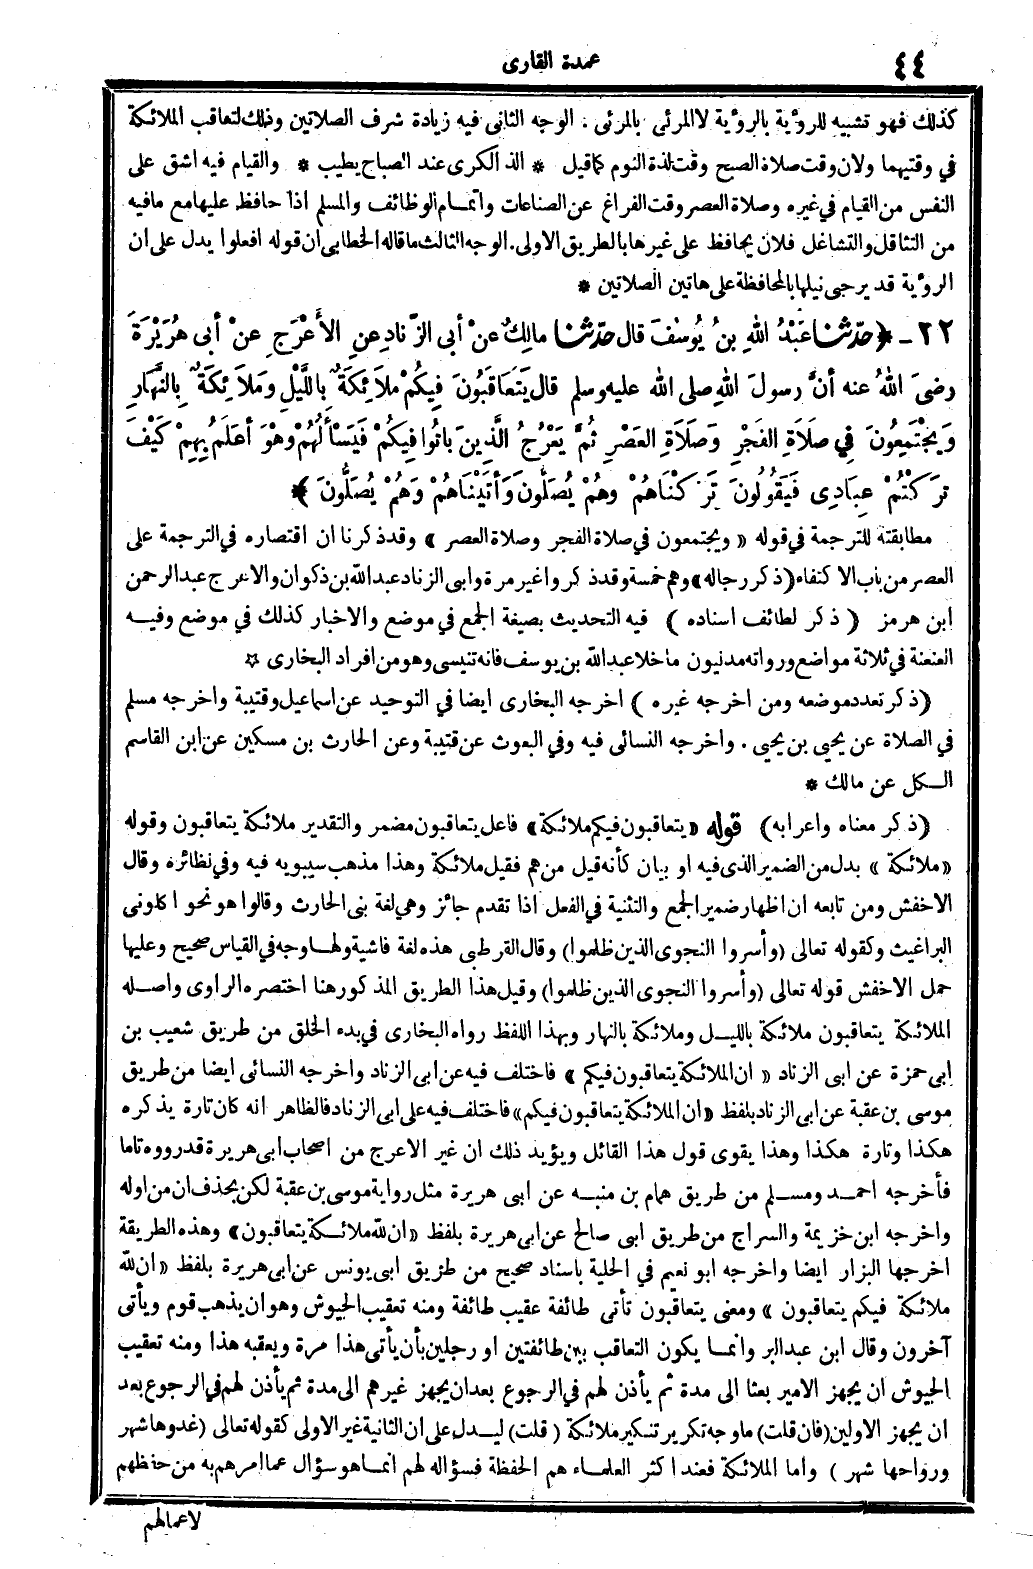 ٤٤
عمدة القارى
كذلك فهو تشبيه للرؤية بالرؤية لا المرئى بالمرئى . الوجه الثانى فيه زيادة شرف الصلاتين وذلك لتعاقب الملائكة
فى وقتيهما ولان وقت صلاة الصبح وقت لذة النوم كما قيل * الذ الكرى عند الصباح يطيب * والقيام فيه اشق على
النفس من القيام فى غيره وصلاة العصر وقت الفراغ عن الصناعات واتمام الوظائف والمسلم اذا حافظ عليها مع مافيه
من التثاقل والتشاغل فلان يحافظ على غيرها بالطريق الاولى . الوجه الثالث ما قاله الخطابى ان قوله افعلوا يدل على ان
الرؤية قد يرجى نيلها بالمحافظة على هاتين الصلاتين *
٢٢ - ﴿ حدّثنا عَبْدُ اللهِ بنُ يُوسُفَ قال حدّثنا مالِكٌ عنْ أبى الزّنادِ عنِ الأَعْرَجِ عنْ أبى هُرَيْرَةَ
رضىَ اللهُ عنه أنَّ رسولَ اللهِ صلى الله عليه وسلم قال يَتَعاقَبُونَ فِيكُمْ ملَائِكَةٌ بِاللَّيْلِ وَمَلَائِكَةٌ بِالنَّهارِ
وَيَجْتَمِعُونَ فِي صلَاةِ الفَجْرِ وَصلَاةِ العَصْرِ ثُمَّ يَعْرُجُ الَّذِينَ باتُوا فِيكُمْ فَيَسْأَلُهُمْ وهْوَ أعْلَمُ بِهِمْ كَيْفَ
تَرَكْتُمْ عِبَادِى فَيَقُولُونَ تَرَكْنَاهُمْ وهُمْ يُصَلُّونَ وَأتَيْنَاهُمْ وَهُمْ يُصَلُّونَ ﴾
مطابقته للترجمة فى قوله «ويجتمعون فى صلاة الفجر وصلاة العصر» وقد ذكرنا ان اقتصاره فى الترجمة على
العصر من باب الاكتفاء (ذكر رجاله) وهم خمسة وقد ذكروا غير مرة وابى الزناد عبد الله بن ذكوان والاعرج عبد الرحمن
ابن هرمز (ذكر لطائف اسناده) فيه التحديث بصيغة الجمع فى موضع والاخبار كذلك فى موضع وفيه
العنعنة فى ثلاثة مواضع ورواته مدنيون ما خلا عبد الله بن يوسف فانه تنيسى وهو من افراد البخارى ☆
(ذكر تعدد موضعه ومن اخرجه غيره) اخرجه البخارى ايضا فى التوحيد عن اسماعيل وقتيبة واخرجه مسلم
فى الصلاة عن يحيى بن يحيى . واخرجه النسائى فيه وفى البعوث عن قتيبة وعن الحارث بن مسكين عن ابن القاسم
الكل عن مالك *
(ذكر معناه واعرابه) قوله «يتعاقبون فيكم ملائكة» فاعل يتعاقبون مضمر والتقدير ملائكة يتعاقبون وقوله
«ملائكة» بدل من الضمير الذى فيه او بيان كأنه قيل من هم فقيل ملائكة وهذا مذهب سيبويه فيه وفى نظائره وقال
الاخفش ومن تابعه ان اظهار ضمير الجمع والتثنية فى الفعل اذا تقدم جائز وهى لغة بنى الحارث وقالوا هو نحو اكلونى
البراغيث وكقوله تعالى (وأسروا النجوى الذين ظلموا) وقال القرطبى هذه لغة فاشية ولها وجه فى القياس صحيح وعليها
حمل الاخفش قوله تعالى (وأسروا النجوى الذين ظلموا) وقيل هذا الطريق المذكور هنا اختصره الراوى واصله
الملائكة يتعاقبون ملائكة بالليل وملائكة بالنهار وبهذا اللفظ رواه البخارى فى بدء الخلق من طريق شعيب بن
ابى حمزة عن ابى الزناد «ان الملائكة يتعاقبون فيكم» فاختلف فيه عن ابى الزناد واخرجه النسائى ايضا من طريق
موسى بن عقبة عن ابى الزناد بلفظ «ان الملائكة يتعاقبون فيكم» فاختلف فيه على ابى الزناد فالظاهر انه كان تارة يذكره
هكذا وتارة هكذا وهذا يقوى قول هذا القائل ويؤيد ذلك ان غير الاعرج من اصحاب ابى هريرة قد رووه تاما
فأخرجه احمد ومسلم من طريق همام بن منبه عن ابى هريرة مثل رواية موسى بن عقبة لكن بحذف ان من اوله
واخرجه ابن خزيمة والسراج من طريق ابى صالح عن ابى هريرة بلفظ «ان لله ملائكة يتعاقبون» وهذه الطريقة
اخرجها البزار ايضا واخرجه ابو نعيم فى الحلية باسناد صحيح من طريق ابى يونس عن ابى هريرة بلفظ «ان لله
ملائكة فيكم يتعاقبون» ومعنى يتعاقبون تأتى طائفة عقيب طائفة ومنه تعقيب الجيوش وهو ان يذهب قوم ويأتى
آخرون وقال ابن عبد البر وانما يكون التعاقب بين طائفتين او رجلين بأن يأتى هذا مرة ويعقبه هذا ومنه تعقيب
الجيوش ان يجهز الامير بعثا الى مدة ثم يأذن لهم فى الرجوع بعد ان يجهز غيرهم الى مدة ثم يأذن لهم فى الرجوع بعد
ان يجهز الاولين (فان قلت) ما وجه تكرير تنكير ملائكة (قلت) ليدل على ان الثانية غير الاولى كقوله تعالى (غدوها شهر
ورواحها شهر) واما الملائكة فعند اكثر العلماء هم الحفظة فسؤاله لهم انما هو سؤال عما امرهم به من حفظهم
لاعمالهم